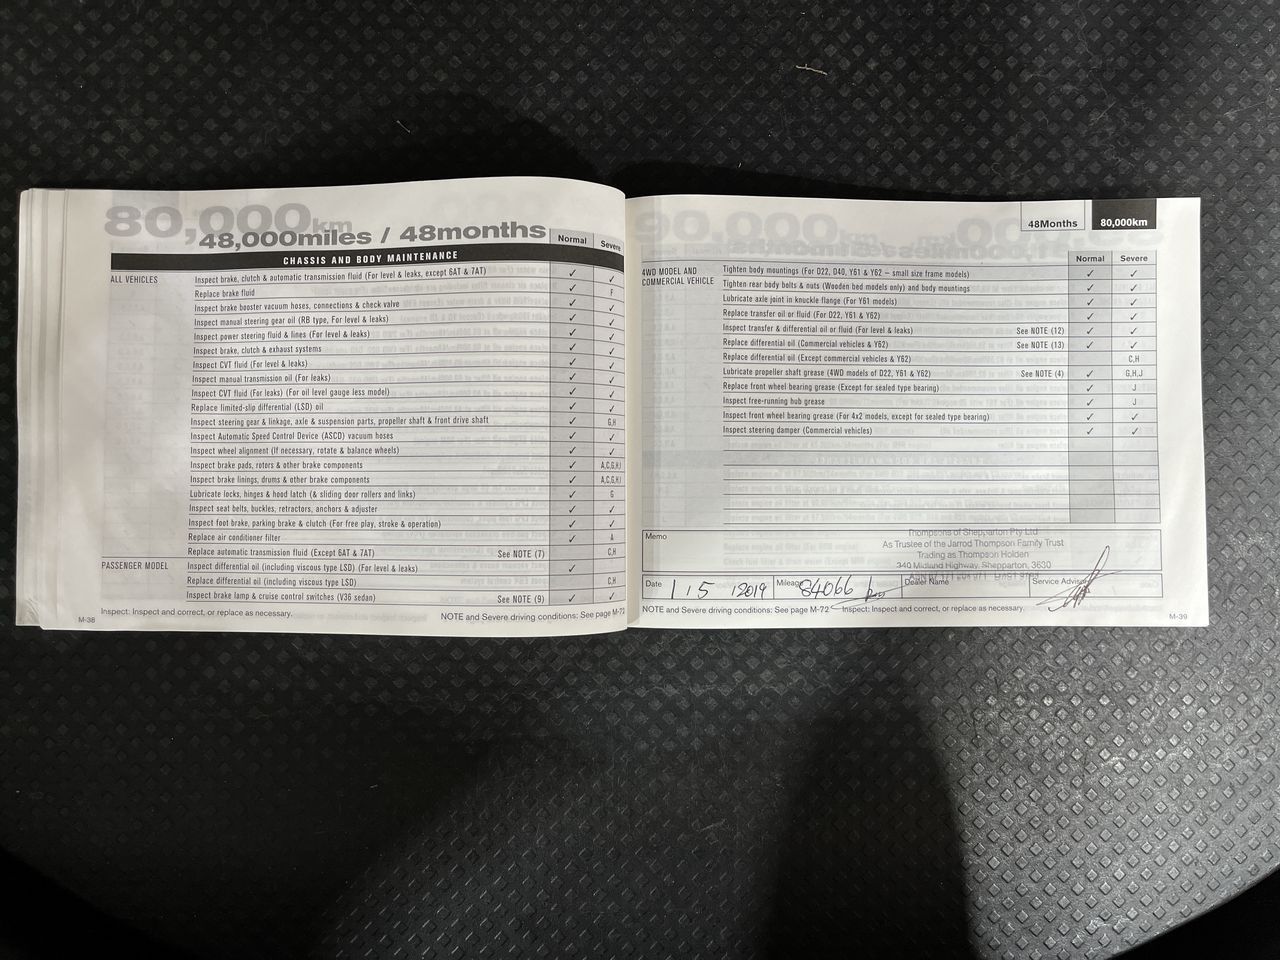 80,000km
48,000miles / 48months
Normal Severe
CHASSIS AND BODY MAINTENANCE
ALL VEHICLES
Inspect brake, clutch & automatic transmission fluid (For level & leaks, except 6AT & 7AT) ✓ ✓
Replace brake fluid ✓ F
Inspect brake booster vacuum hoses, connections & check valve ✓ ✓
Inspect manual steering gear oil (RB type, For level & leaks) ✓ ✓
Inspect power steering fluid & lines (For level & leaks) ✓ ✓
Inspect brake, clutch & exhaust systems ✓ ✓
Inspect CVT fluid (For level & leaks) ✓ ✓
Inspect manual transmission oil (For leaks) ✓ ✓
Inspect CVT fluid (For leaks) (For oil level gauge less model) ✓ ✓
Replace limited-slip differential (LSD) oil ✓ ✓
Inspect steering gear & linkage, axle & suspension parts, propeller shaft & front drive shaft ✓ G,H
Inspect Automatic Speed Control Device (ASCD) vacuum hoses ✓ ✓
Inspect wheel alignment (If necessary, rotate & balance wheels) ✓ ✓
Inspect brake pads, rotors & other brake components ✓ A,C,G,H,I
Inspect brake linings, drums & other brake components ✓ A,C,G,H,I
Lubricate locks, hinges & hood latch (& sliding door rollers and links) ✓ G
Inspect seat belts, buckles, retractors, anchors & adjuster ✓ ✓
Inspect foot brake, parking brake & clutch (For free play, stroke & operation) ✓ ✓
Replace air conditioner filter ✓ A
Replace automatic transmission fluid (Except 6AT & 7AT) See NOTE (7) C,H
PASSENGER MODEL
Inspect differential oil (including viscous type LSD) (For level & leaks) ✓
Replace differential oil (including viscous type LSD) C,H
Inspect brake lamp & cruise control switches (V36 sedan) See NOTE (9) ✓ ✓
Inspect: Inspect and correct, or replace as necessary. NOTE and Severe driving conditions: See page M-72
M-38
48Months 80,000km
Normal Severe
4WD MODEL AND COMMERCIAL VEHICLE
Tighten body mountings (For D22, D40, Y61 & Y62 – small size frame models) ✓ ✓
Tighten rear body bolts & nuts (Wooden bed models only) and body mountings ✓ ✓
Lubricate axle joint in knuckle flange (For Y61 models) ✓ ✓
Replace transfer oil or fluid (For D22, Y61 & Y62) ✓ ✓
Inspect transfer & differential oil or fluid (For level & leaks) See NOTE (12) ✓ ✓
Replace differential oil (Commercial vehicles & Y62) See NOTE (13) ✓ ✓
Replace differential oil (Except commercial vehicles & Y62) C,H
Lubricate propeller shaft grease (4WD models of D22, Y61 & Y62) See NOTE (4) ✓ G,H,J
Replace front wheel bearing grease (Except for sealed type bearing) ✓ J
Inspect free-running hub grease ✓ J
Inspect front wheel bearing grease (For 4x2 models, except for sealed type bearing) ✓ ✓
Inspect steering damper (Commercial vehicles) ✓ ✓
Memo
Thompsons of Shepparton Pty Ltd
As Trustee of the Jarrod Thompson Family Trust
Trading as Thompson Holden
340 Midland Highway, Shepparton, 3630
Date 1 / 5 / 2019 Mileage 84066 km Dealer Name Service Advisor
NOTE and Severe driving conditions: See page M-72 Inspect: Inspect and correct, or replace as necessary.
M-39